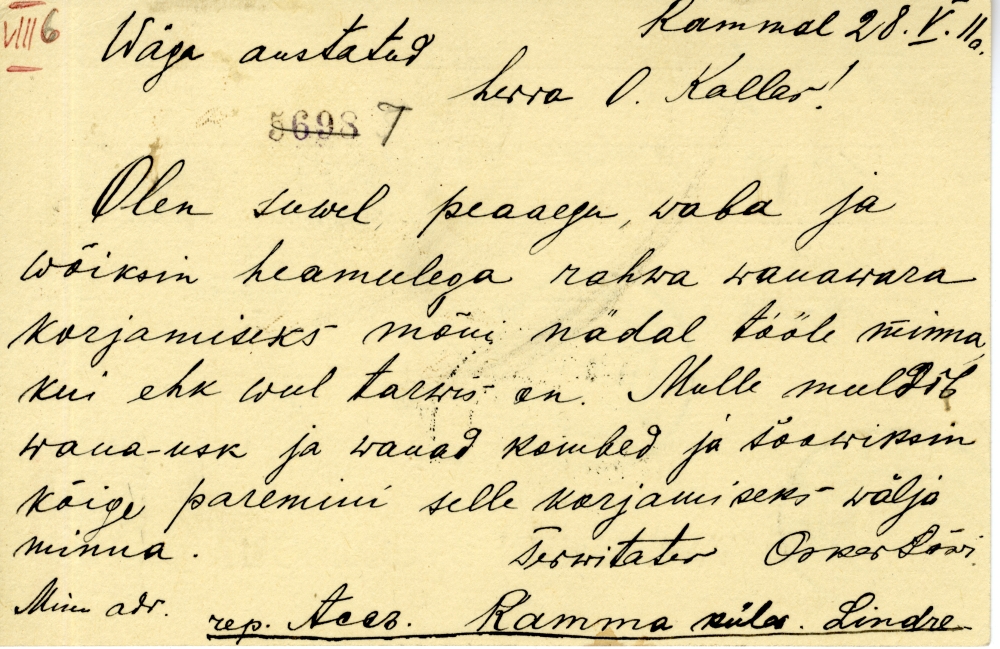 VIII 6
Kammal 28. V. 11a.
Wäga austatud
herra O. Kallas!
5698 7
Olen suwel peaaegu waba ja
wõiksin heameelega rahwa wanawara
korjamiseks mõni nädal tööle minna,
kui ehk weel tarwis on. Mulle meeldib
wana-usk ja wanad kombed ja soowiksin
kõige paremini selle korjamiseks wälja
minna.
Terwitates Oskar Lõwi.
Minu adr.
rep. Kamma küla. Lindre